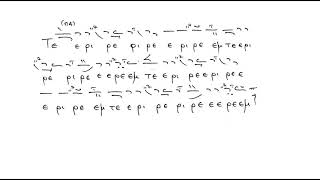 (πα)
Τε ε ρι ρε ρι ρε ε ρι ρε εμ τε ε ρι
ρε ρι ρε ε ρεεμ τε ε ρι ρε ε ρι ρε ε
ε ρι ρε εμ τε ε ρι ρε ρι ρε ε ε ρεεμ